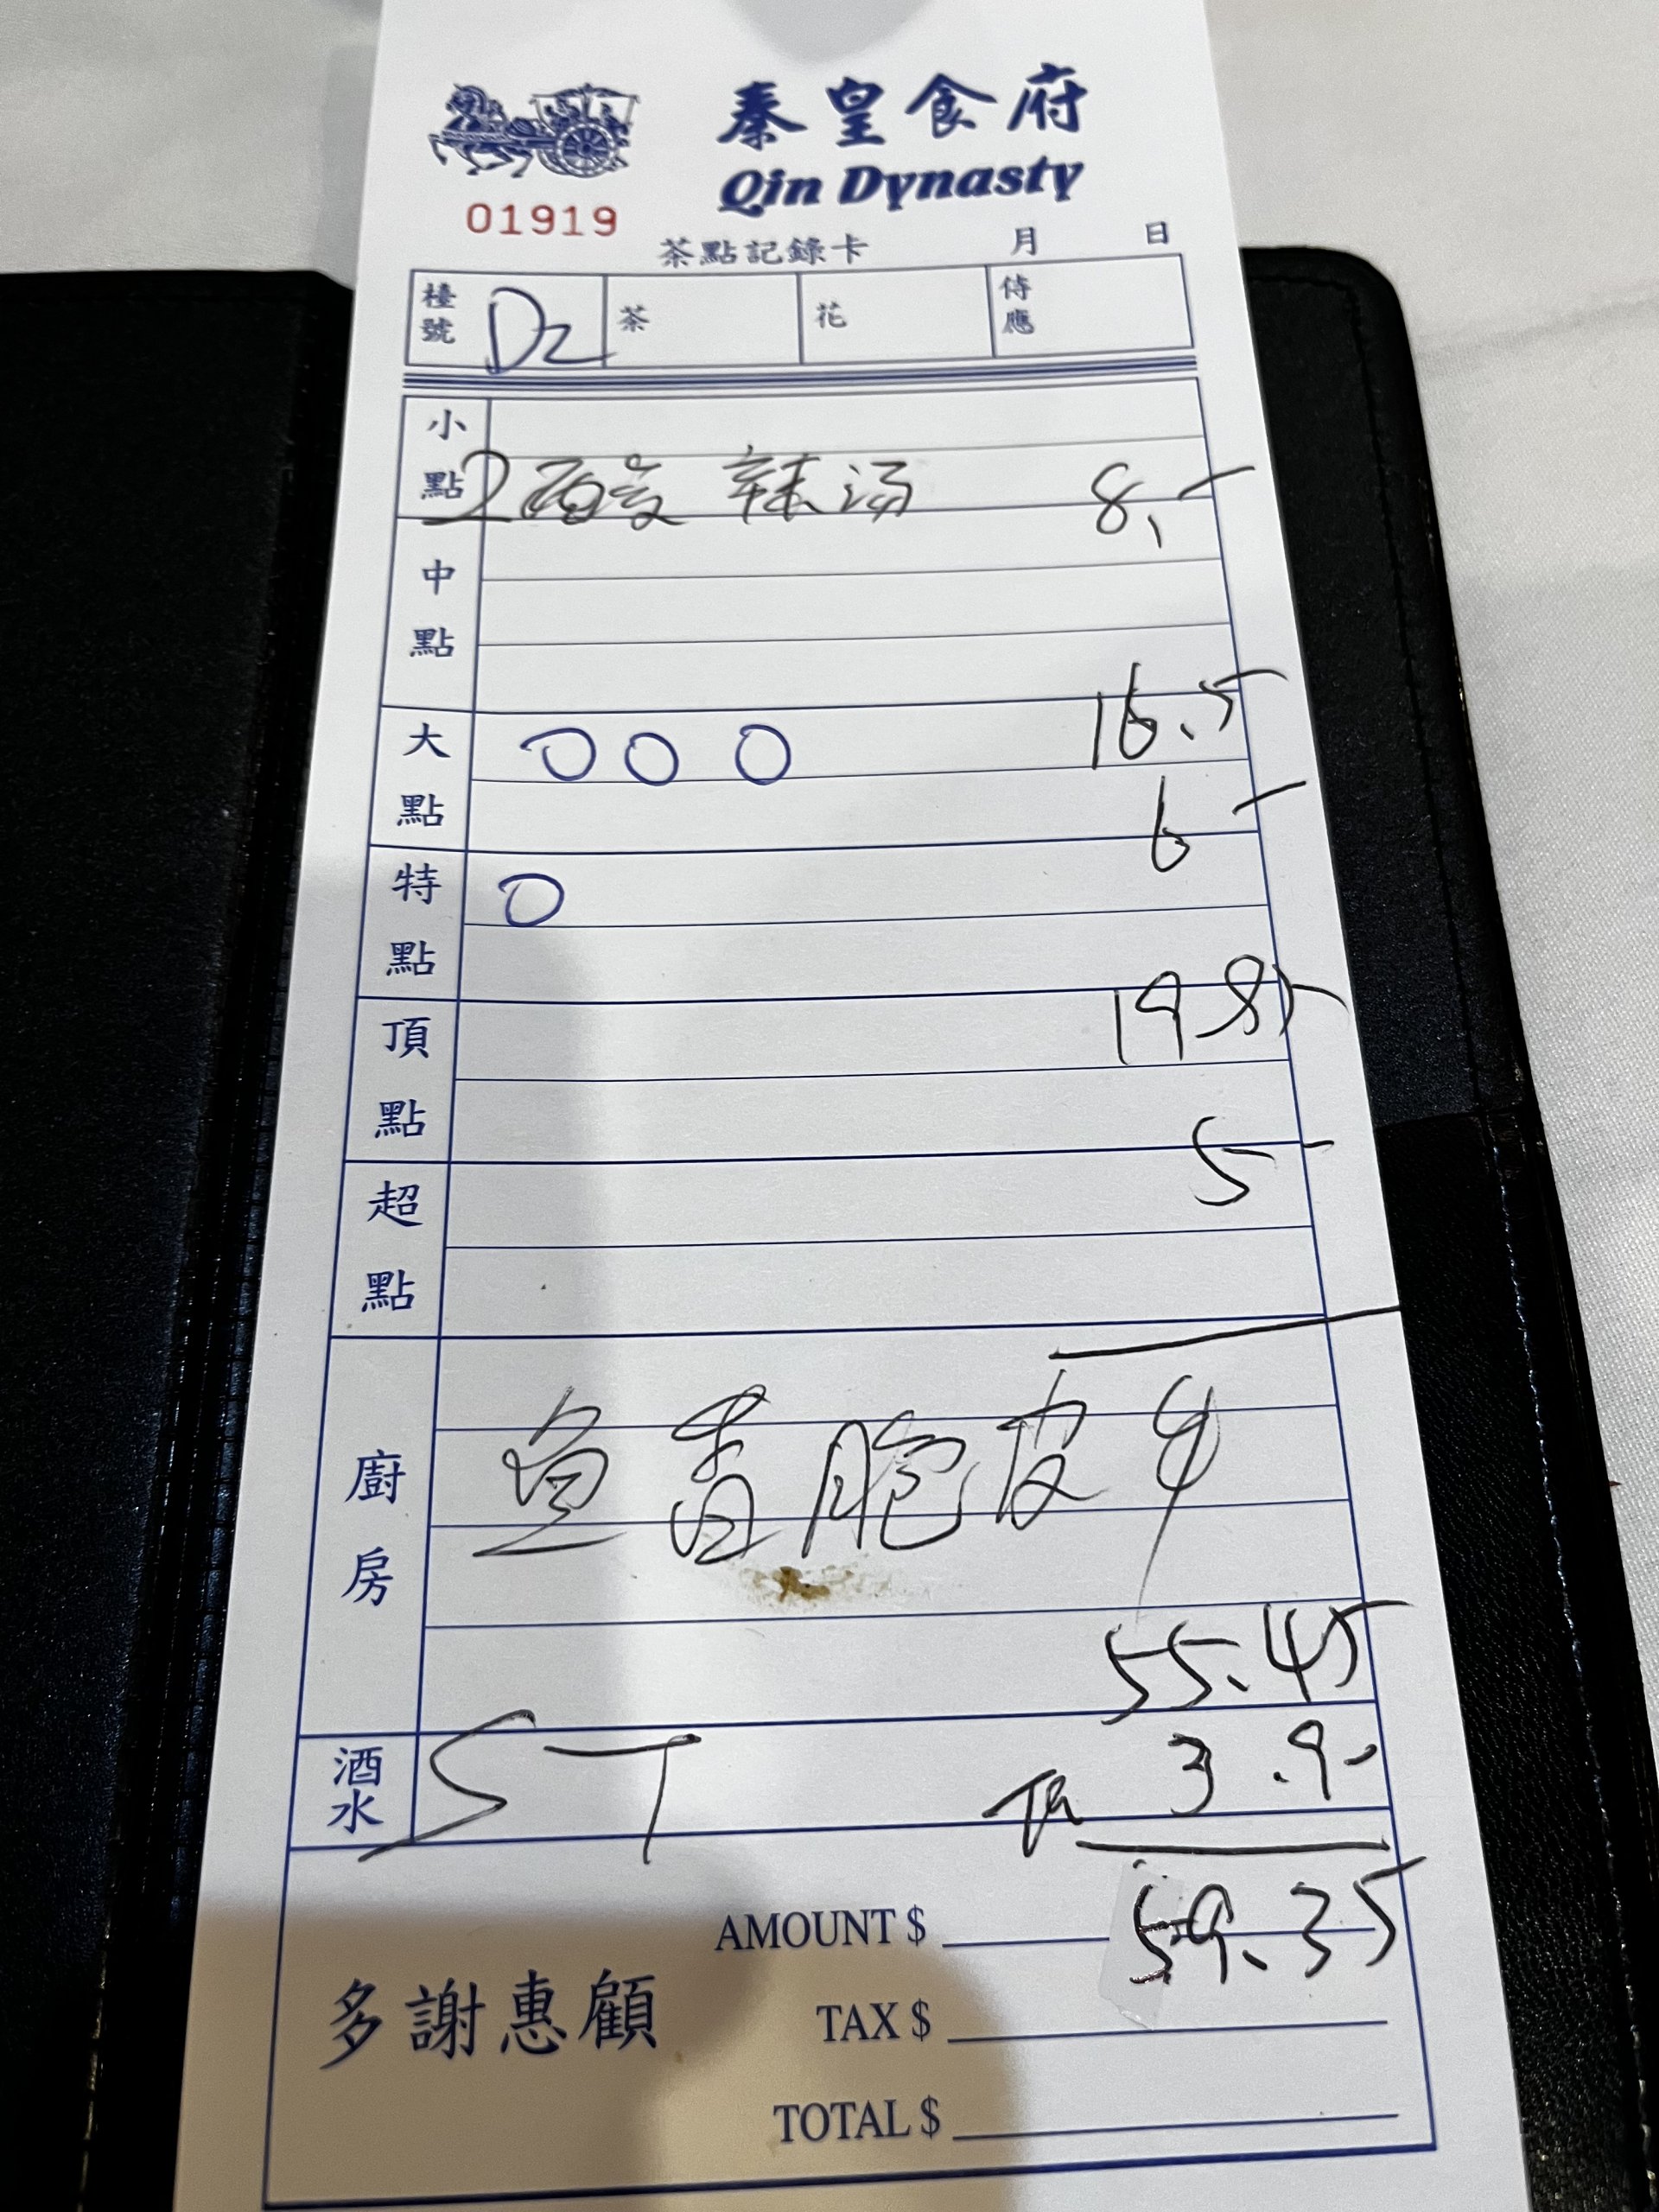 秦皇食府
Qin Dynasty
01919
茶點記錄卡 月 日
檯號 D2 茶 花 侍應
小點 2酸辣汤 8.-
中點
大點 16.5
6-
特點
頂點 19 95
超點 5-
廚房
鱼香脆皮牛
55.45
酒水 S T Tax 3.9-
AMOUNT $ 59.35
多謝惠顧
TAX $
TOTAL $